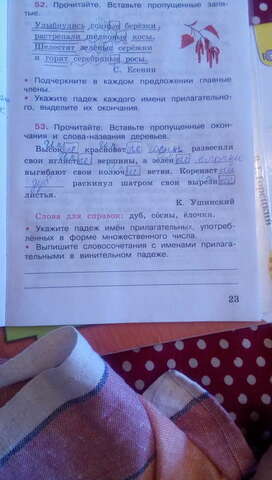 52. Прочитайте. Вставьте пропущенные запя-
тые.
Улыбнулись сонные берёзки,
растрепали шёлковые косы.
Шелестят зелёные серёжки
и горят серебряные росы.
С. Есенин
• Подчеркните в каждом предложении главные
члены.
• Укажите падеж каждого имени прилагательно-
го, выделите их окончания.
53. Прочитайте. Вставьте пропущенные оконча-
ния и слова-названия деревьев.
Высокие красноватые сосны развесили
свои иглистые вершины, а зелёные ёлочки
выгибают свои колючие ветви. Коренастый
дуб раскинул шатром свои вырезные
листья.
К. Ушинский
Слова для справок: дуб, сосны, ёлочки.
• Укажите падеж имён прилагательных, употреб-
лённых в форме множественного числа.
• Выпишите словосочетания с именами прилага-
тельными в винительном падеже.
23